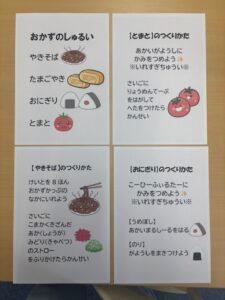 おかずのしゅるい
やきそば
たまごやき
おにぎり
とまと
【とまと】のつくりかた
あかいがようしに
かみをつめよう✨
※いれすぎちゅうい※
さいごに
りょうめんてーぷ
をはがして
へたをつけたら
かんせい
【やきそば】のつくりかた
けいとを8ほん
おかずかっぷの
なかにいれよう
さいごに
こまかくきざんだ
あか(しょうが)
みどり(きゃべつ)
のストロー
をふりかけたらかんせい
【おにぎり】のつくりかた
こーひーふぃるたーに
かみをつめよう✨
※いれすぎちゅうい※
【うめぼし】
あかいまるしーるをはる
【のり】
がようしをまきつけよう